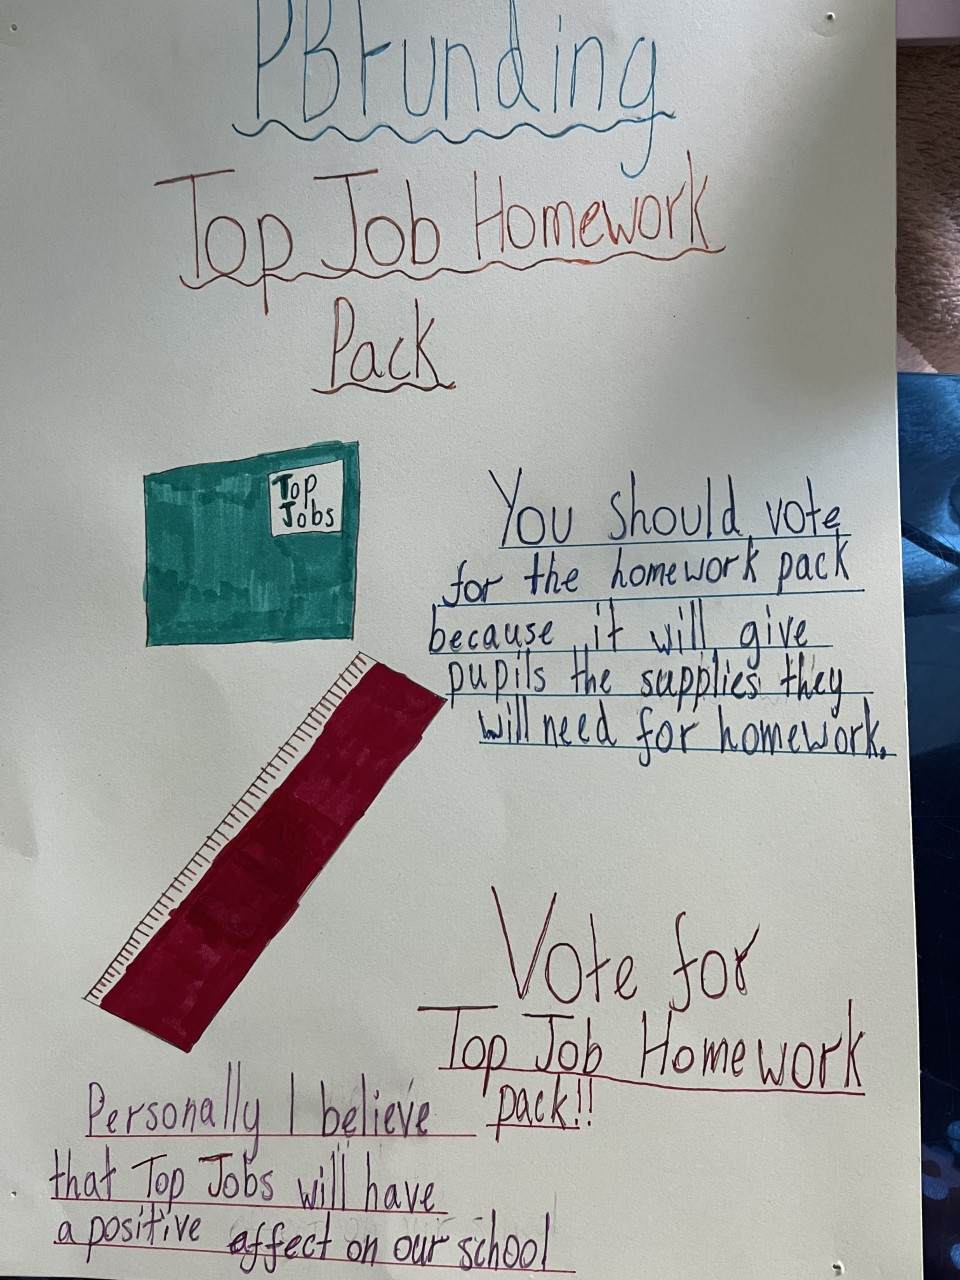 PBFunding
Top Job Homework
Pack
Top
Jobs
You should vote
for the homework pack
because it will give
pupils the supplies they
will need for homework.
Vote for
Top Job Homework
pack!!
Personally I believe
that Top Jobs will have
a positive affect on our school